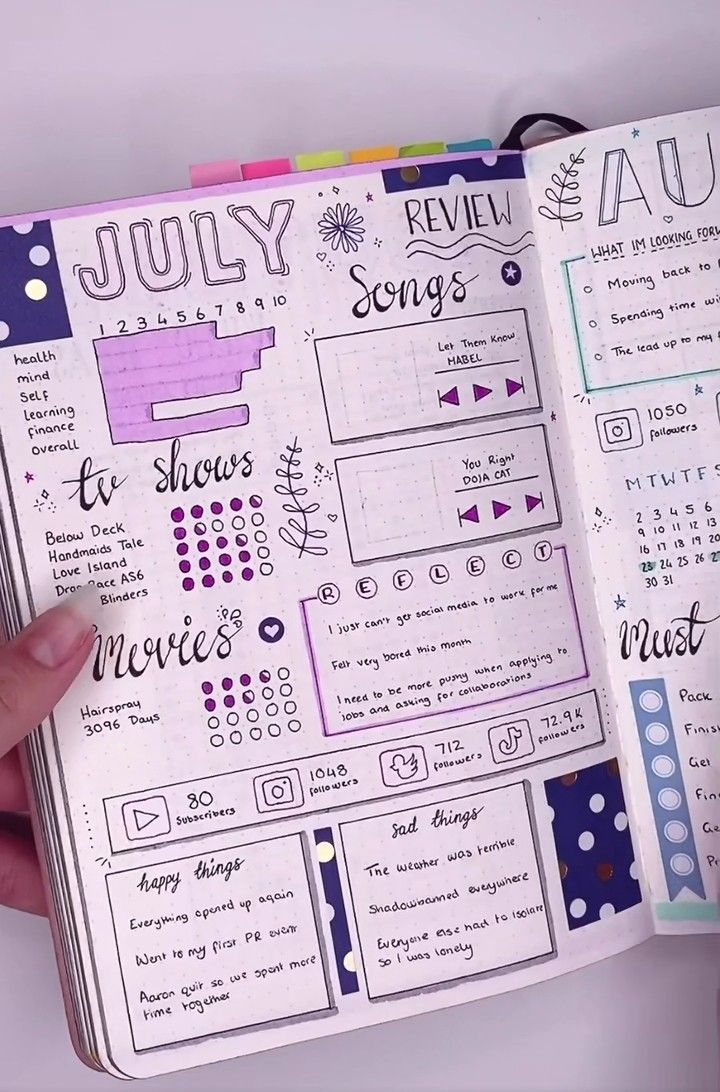 JULY
REVIEW
1 2 3 4 5 6 7 8 9 10
health
mind
Self
Learning
finance
Overall
tv shows
Below Deck
Handmaids Tale
Love Island
Race AS6
Blinders
Movies
Hairspray
3096 Days
Songs
Let Them Know
MABEL
You Right
DOJA CAT
REFLECT
I just can't get social media to work for me
Felt very bored this month
I need to be more pushy when applying to
jobs and asking for collaborations
80
Subscribers
1048
followers
712
followers
72.9K
followers
happy things
Everything opened up again
Went to my first PR event
Aaron quit so we spent more
time together
sad things
The weather was terrible
Shadowbanned everywhere
Everyone else had to isolate
So I was lonely
AU
WHAT IM LOOKING
Moving back to
Spending time
The lead up to my
1050
followers
M T W T F S
2 3 4 5 6
9 10 11 12 13
16 17 18 19 20
23 24 25 26
30 31
Must
Pack